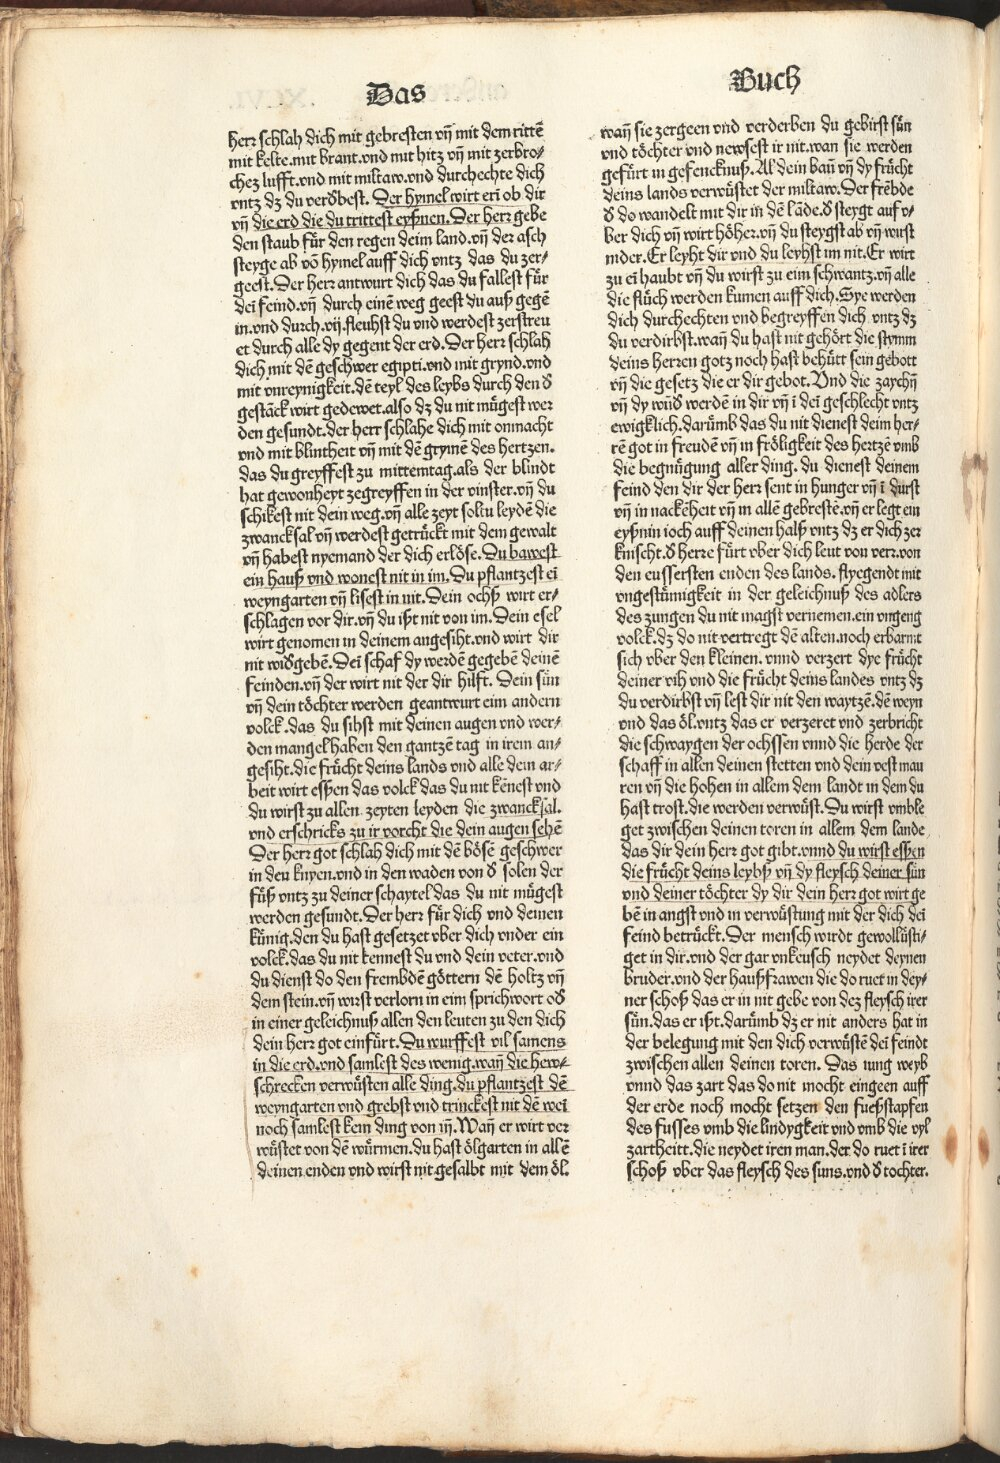 Das
Buch
herr schlah dich mit gebresten vñ mit dem rittē
mit kelte.mit brant.vnd mit hitz vñ mit zerbro⸗
chez lufft.vnd mit miltaw.vnd durchechte dich
vntz dz du verdbest. Der hymel wirt eri ob dir
vñ die erd die du trittest eyßnen.Der herr gebe
den staub für den regen deim land.vñ der asch
steyge ab vō hymel auff dich vntz das du zer⸗
geest.Der herr antwurt dich das du fallest für
deī feind.vñ durch einē weg geest du auß gegē
in.vnd durch.vij.fleuhst du vnd werdest zerstreu
et durch alle dy gegent der erd.Der herr schlah
dich mit dē geschwer egipti.vnd mit grynd.vnd
mit vnreynigkeit.dē teyl des leybs durch den d
gestāck wirt gedewet.also dz du nit mügest wer
den gesundt.der herr schlahe dich mit onmacht
vnd mit blintheit vñ mit dē grymē des hertzen.
das du greyffest zu mittemtag.als der blindt
hat gewonheyt zegreyffen in der vinster.vñ du
schikest nit dein weg.vñ alle zeyt soltu leydē die
zwancksal vñ werdest getrückt mit dem gewalt
vñ habest nyemand der dich erlöse.Du bawest
ein hauß vnd wonest nit in im.Du pflantzest eī
weyngarten vñ lisest in nit.Dein ochß wirt er⸗
schlagen vor dir.vñ du ißt nit von im.Dein esel
wirt genomen in deinem angesiht.vnd wirt dir
nit widgebē.Deī schaf dy werdē gegebē deinē
feinden.vñ der wirt nit der dir hilft. Dein sün
vñ dein töchter werden geantwurt eim andern
volck.das du sihst mit deinen augen vnd wer⸗
den mangel haben den gantzē tag in irem an⸗
gesiht.die frücht deins lands vnd alle dein ar⸗
beit wirt essen das volck das du nit kēnest vnd
du wirst zu allen zeyten leyden die zwancksal.
vnd erschricks zu ir vorcht die dein augen sehē
Der herr got schlah dich mit dē bösē geschwer
in den knyen.vnd in den waden von d solen der
füß vntz zu deiner schaytel das du nit mügest
werden gesundt.Der herr für dich vnd deinen
künig.den du hast gesetzet vber dich vnder ein
volck.das du nit kennest du vnd dein veter.vnd
du dienst do den frembdē göttern dē holtz vñ
dem stein.vñ wirst verlorn in eim sprichwort od
in einer geleichnuß allen den leuten zu den dich
dein herr got einfürt.Du wurffest vil samens
in die erd.vnd samlest des wenig.wañ die hew⸗
schrecken verwüsten alle ding.du pflantzest dē
weyngarten vnd grebst vnd trinckest nit dē weī
noch samlest kein ding von iñ.Wañ er wirt ver
wüstet von dē würmen.du hast ölgarten in allē
deinen enden vnd wirst nit gesalbt mit dem öl.
wañ sie zergeen vnd verderben du gebirst sün
vnd töchter vnd newsest ir nit.wan sie werden
gefürt in gefencknuß.Al dein baū vñ dy frücht
deins lands verwüstet der miltaw.Der frēbde
d do wandelt mit dir in dē lāde.d steygt auf v⸗
ber dich vñ wirt höher.vñ du steygst ab vñ wirst
nider.Er leyht dir vnd du leyhst im nit.Er wirt
zu eī haubt vñ du wirst zu eim schwantz.vñ alle
die flüch werden kumen auff dich.Sye werden
dich durchechten vnd begreyffen dich vntz dz
du verdirbst.wañ du hast nit gehört die stymm
deins herren gotz noch hast behütt sein gebott
vñ die gesetz die er dir gebot.Vnd die zaychñ
vñ dy wūd werdē in dir vñ ī deī geschlecht vntz
ewigklich.darūmb das du nit dienest deim her⸗
rē got in freudē vñ in fröligkeit des hertzē vmb
die begnügung aller ding. du dienest deinem
feind den dir der herr sent in hunger vñ ī durst
vñ in nackēheit vñ in allē gebrestē.vñ er legt ein
eyßnin ioch auff deinen halß vntz dz er dich zer
knischt.d herre fürt vber dich leut von verr.von
den eussersten enden des lands.flyegendt mit
vngestümigkeit in der geleichnuß des adlers
des zungen du nit magst vernemen.ein vngeng
volck.dz do nit vertregt dē alten.noch erbarmt
sich vber den kleinen. vnnd verzert dye frücht
deiner vih vnd die frücht deins landes vntz dz
du verdirbst vñ lest dir nit den waytzē.dē weyn
vnd das öl.vntz das er verzeret vnd zerbricht
die schwaygen der ochssen vnnd die herde der
schaff in allen deinen stetten vnd dein vest mau
ren vñ die hohen in allem dem landt in dem du
hast trost.die werden verwüst.Du wirst vmble
get zwischen deinen toren in allem dem lande
das dir dein herr got gibt.vnnd du wirst essen
die frücht deins leybß vñ dy fleysch deiner sün
vnd deiner töchter dy dir dein herr got wirt ge
bē in angst vnd in verwüstung mit der dich deī
feind betrückt.Der mensch wirdt gewollüsti⸗
get in dir.vnd der gar vnkeusch neydet deynen
bruder.vnd der haußfrawen die do ruet in dey⸗
ner schoß das er in nit gebe von dez fleysch irer
sün.das er ißt.darūmb dz er nit anders hat in
der belegung mit den dich verwüstē deī feindt
zwischen allen deinen toren. Das iung weyb
vnnd das zart das do nit mocht eingeen auff
der erde noch mocht setzen den fueßstapfen
des fusses vmb die lindygkeit vnd vmb die vyl
zartheitt.die neydet iren man.der do ruet ī irer
schoß vber das fleysch des suns.vnd d tochter.